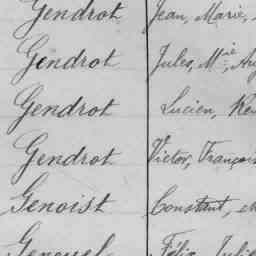 Gendrot Jean, Marie,
Gendrot Jules, Mie, Au
Gendrot Lucien, Re
Gendrot Victor, François
Genoist Constant,
Genouel Félix, Julie